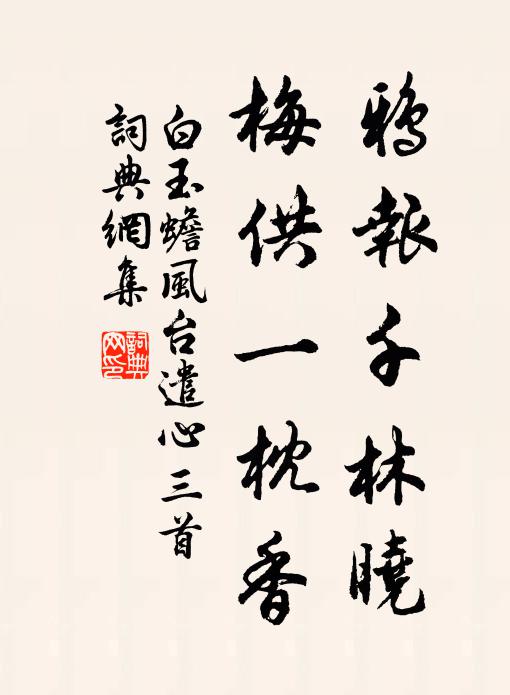 鴉報千林曉
梅供一枕香
白玉蟾風台遣心三首
詞典網集
詞典
网印